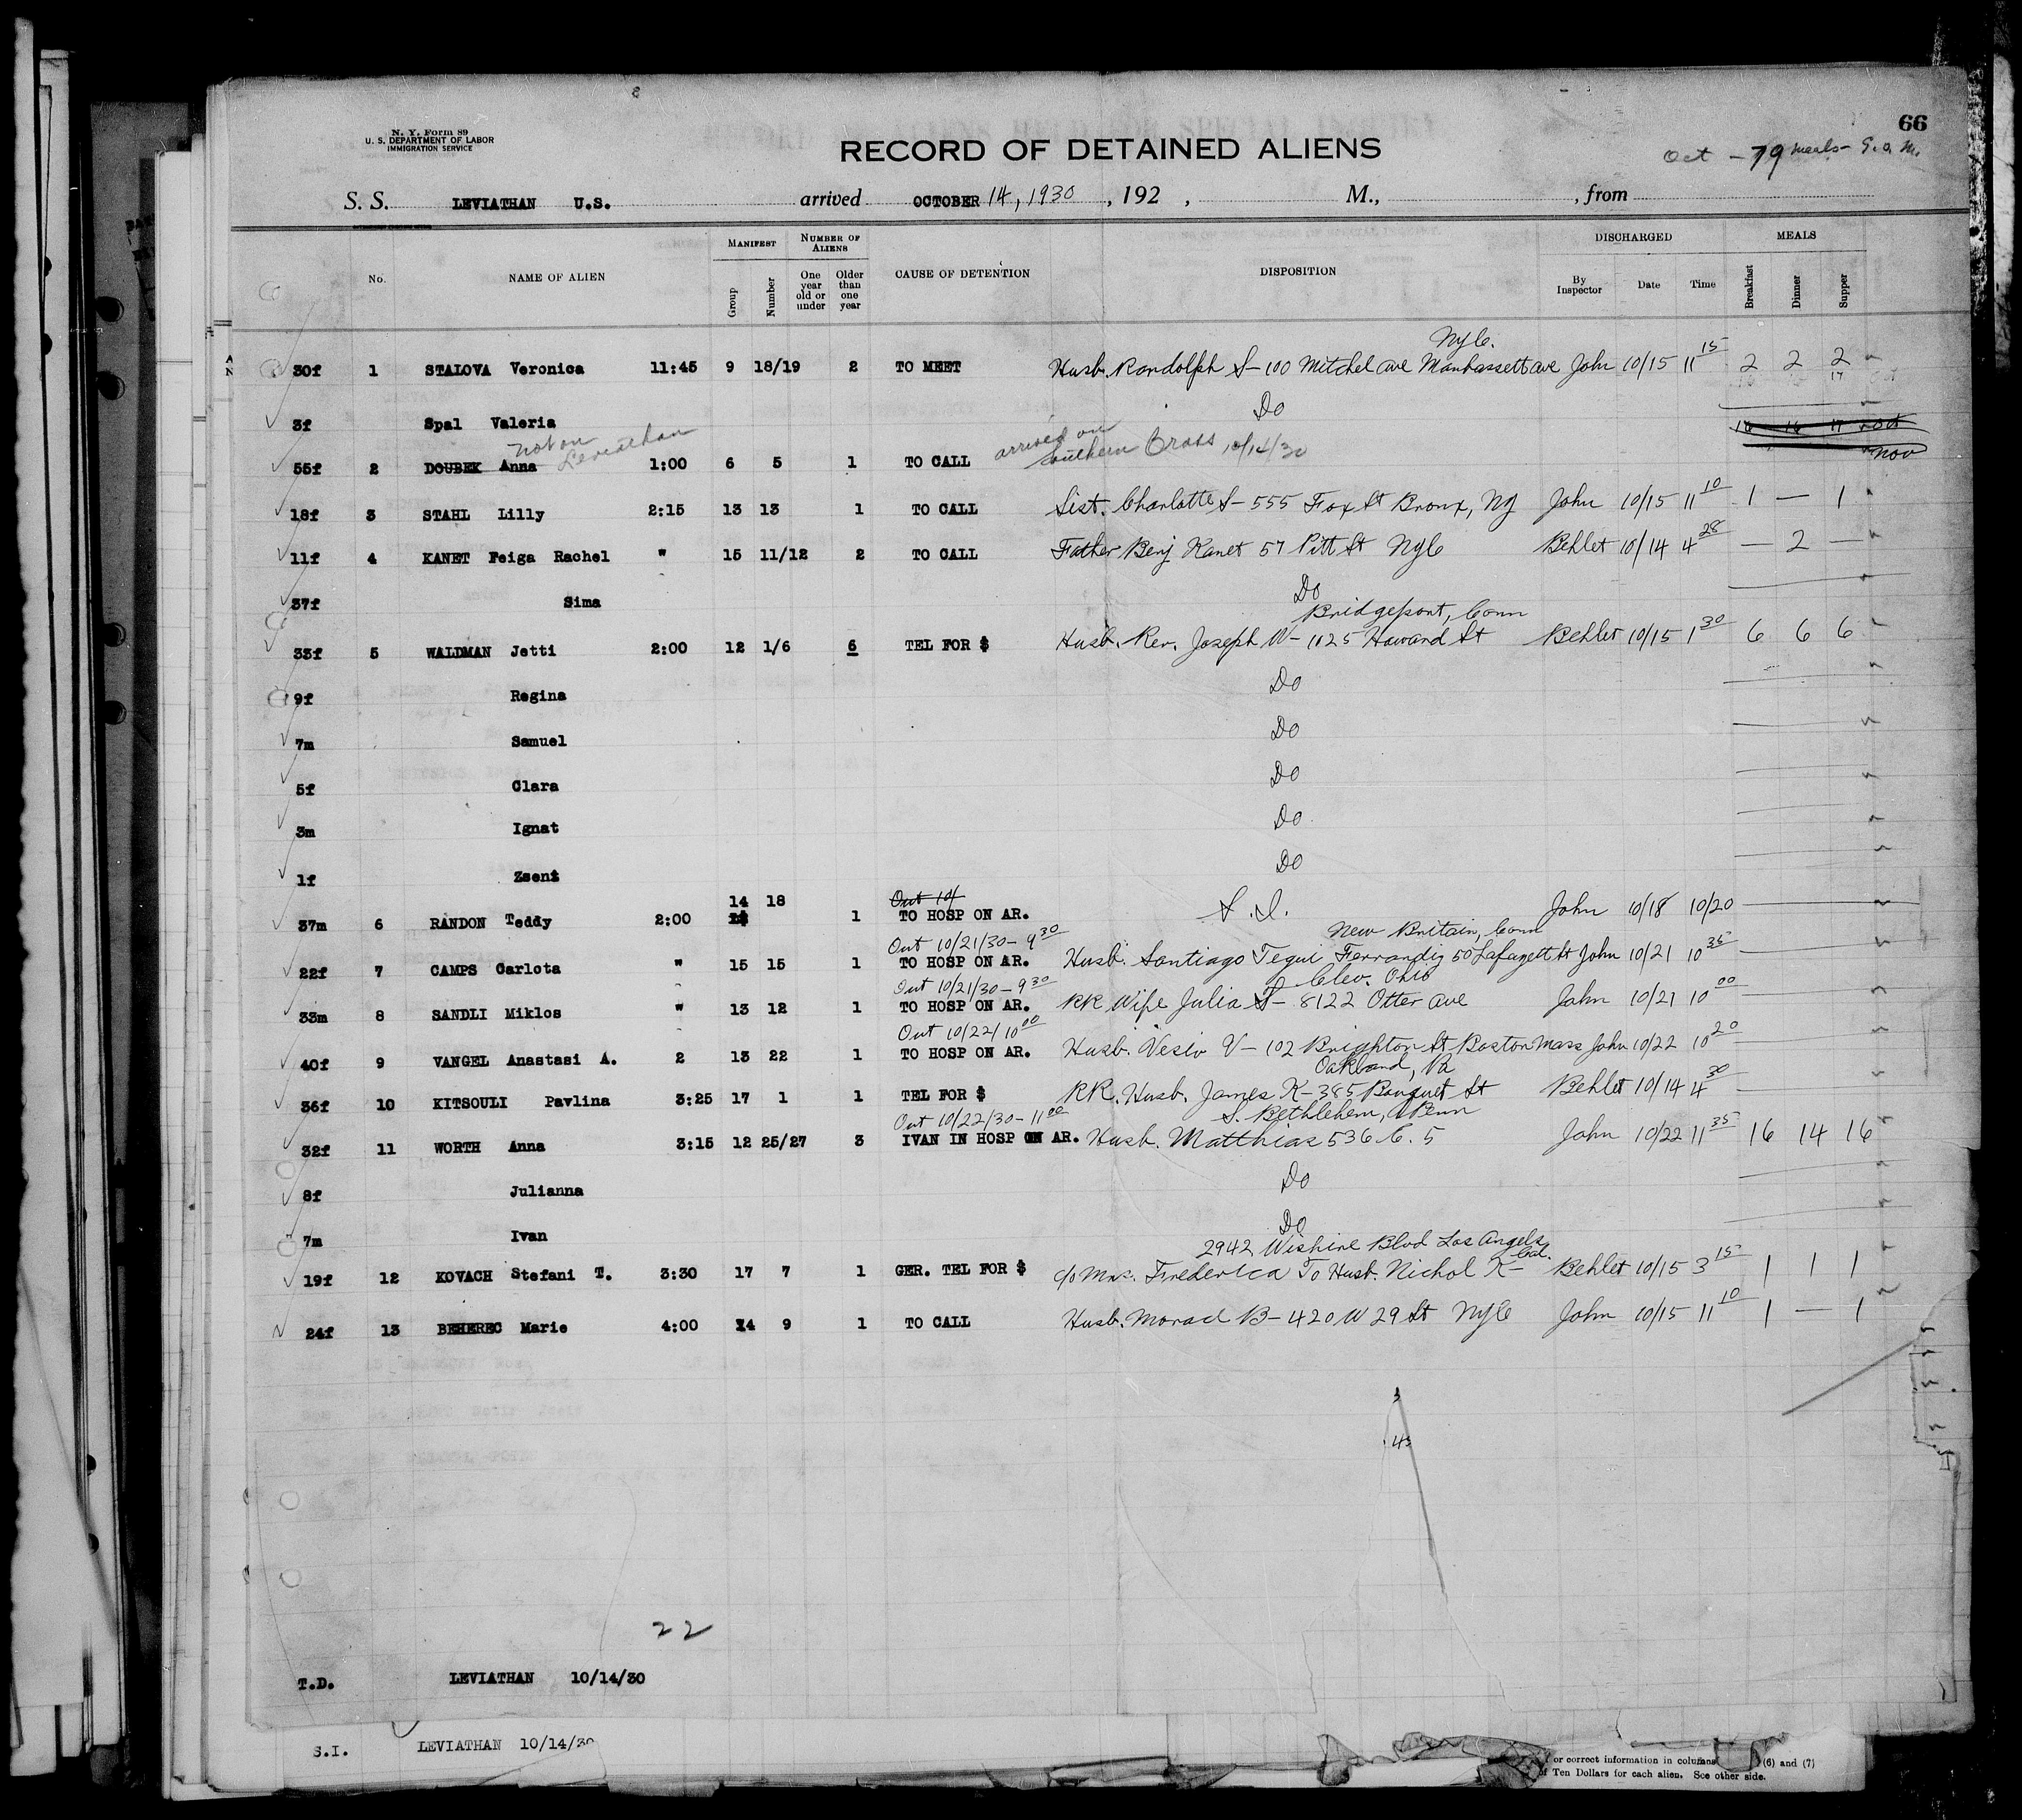 66
N. Y. Form 89
U. S. DEPARTMENT OF LABOR
IMMIGRATION SERVICE
RECORD OF DETAINED ALIENS
Oct - 79 meals -
S. S. LEVIATHAN U.S. arrived OCTOBER 14, 1930, 192 , M., , from
No. NAME OF ALIEN MANIFEST Group Number NUMBER OF ALIENS One year old or under Older than one year CAUSE OF DETENTION DISPOSITION DISCHARGED By Inspector Date Time MEALS Breakfast Dinner Supper
NyC.
30f 1 STALOVA Veronica 11:45 9 18/19 2 TO MEET Husb. Randolph S- 100 Mitchel ave Manhassett ave John 10/15 11 15 2 2 2
3f Spal Valeria Do
not on Leviathan arrived on
55f 2 DOUBEK Anna 1:00 6 5 1 TO CALL Southern Cross 10/14/30 nov
18f 3 STAHL Lilly 2:15 13 13 1 TO CALL Sist. Charlotte S- 555 Fox St Bronx, Ny John 10/15 11 10 1 — 1
11f 4 KANET Feiga Rachel " 15 11/12 2 TO CALL Father Benj Kanet 57 Pitt St NyC Behlet 10/14 4 28 — 2 —
37f Sima Do
Bridgeport, Conn
33f 5 WALDMAN Jetti 2:00 12 1/6 6 TEL FOR $ Husb. Rev. Joseph W- 1025 Howard St Behlet 10/15 1 30 6 6 6
9f Regina Do
7m Samuel Do
5f Clara Do
3m Ignat Do
1f Zseni Do
14 18 Out 10/
37m 6 RANDON Teddy 2:00 1 TO HOSP ON AR. S.I. John 10/18 10/20
Out 10/21/30 - 9 30 New Britain, Conn
22f 7 CAMPS Carlota " 15 15 1 TO HOSP ON AR. Husb. Santiago Tegui Ferrandiz 50 Lafayett St John 10/21 10 35
Out 10/21/30 - 9 30 Clev. Ohio
33m 8 SANDLI Miklos " 13 12 1 TO HOSP ON AR. RR Wife Julia S- 8122 Otter ave John 10/21 10 00
Out 10/22/ 10 00
40f 9 VANGEL Anastasi A. 2 13 22 1 TO HOSP ON AR. Husb. Vesio V- 102 Brighton St Boston Mass John 10/22 10 20
Oakland, Pa
36f 10 KITSOULI Pavlina 3:25 17 1 1 TEL FOR $ RR. Husb. James K- 385 Bouquet St Behlet 10/14 4 30
Out 10/22/30 - 11 00 S. Bethlehem, Penn
32f 11 WORTH Anna 3:15 12 25/27 3 IVAN IN HOSP ON AR. Husb. Matthias 536 E. 5 John 10/22 11 35 16 14 16
8f Julianna Do
7m Ivan Do
2942 Wishire Blvd Los Angels Cal.
19f 12 KOVACH Stefani T. 3:30 17 7 1 GER. TEL FOR $ c/o Mrs. Frederica To Husb. Nichol K- Behlet 10/15 3 15 1 1 1
24f 13 BEHEREC Marie 4:00 14 9 1 TO CALL Husb. Morad B- 420 W 29 St NyC John 10/15 11 10 1 — 1
3
43
22
T.D. LEVIATHAN 10/14/30
S.I. LEVIATHAN 10/14/30
or correct information in columns (6) and (7)
of Ten Dollars for each alien. See other side.